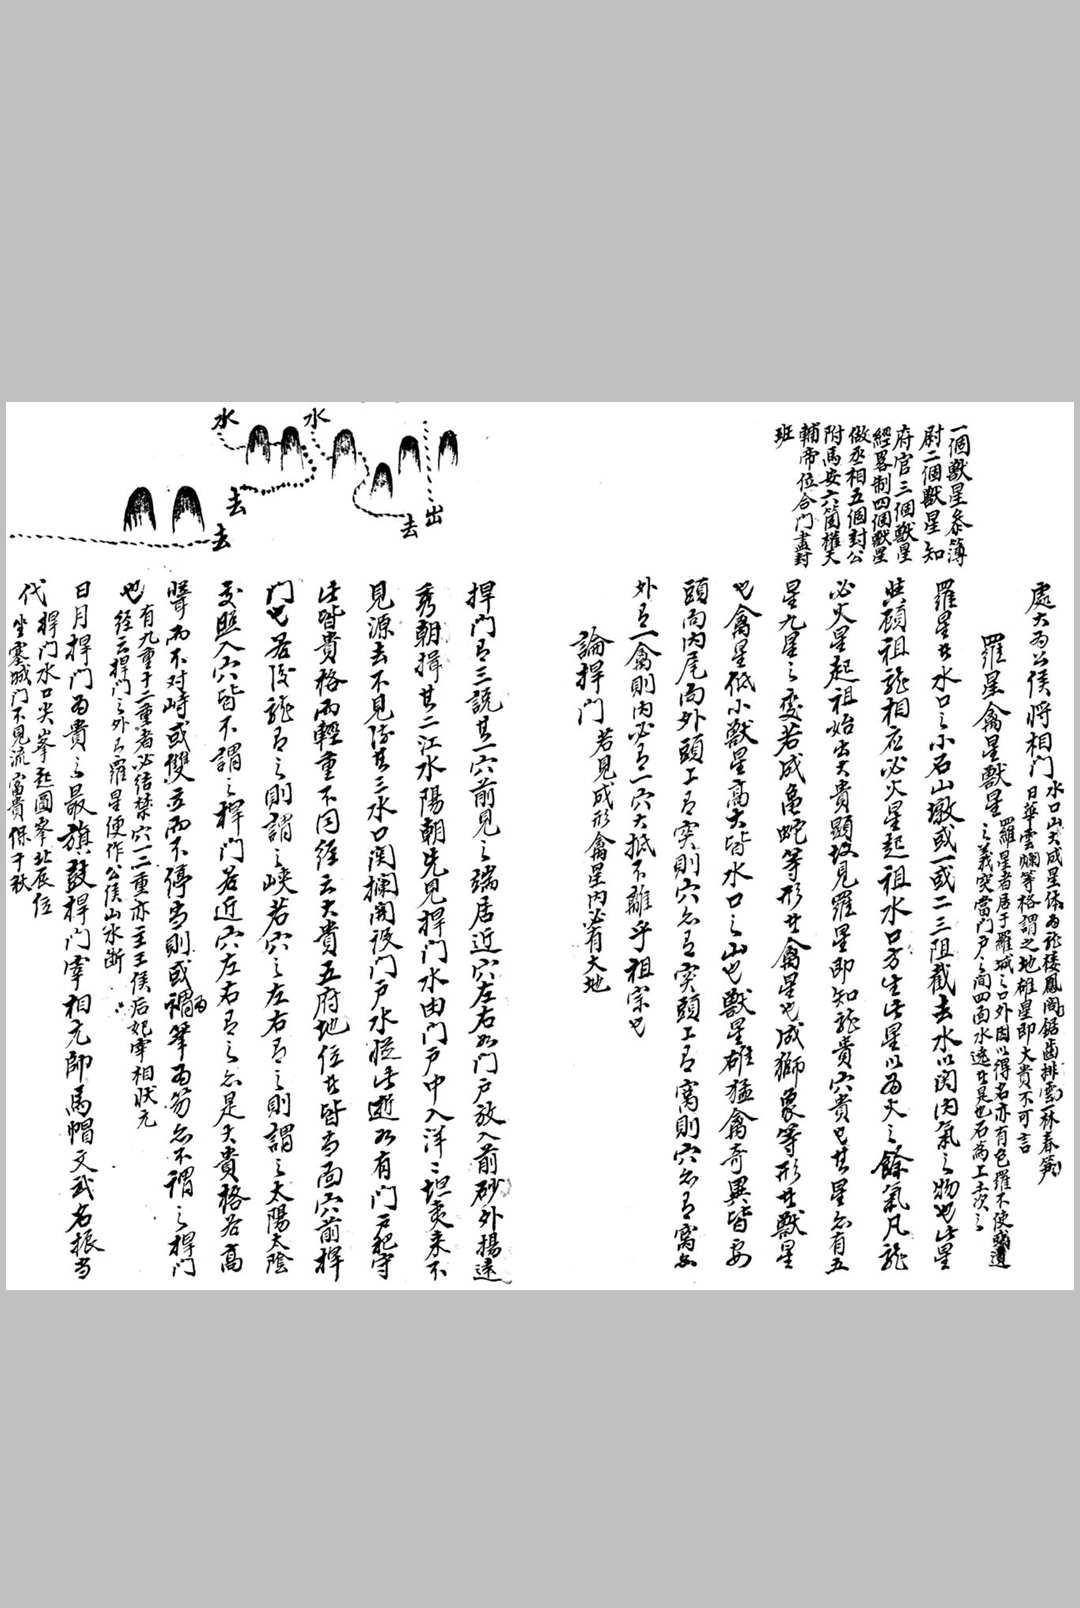 一個獸星參簿
尉二個獸星知
府官三個獸星
經畧制四個獸星
做丞相五個封公
附馬安六箇權天
輔帝位合門盡封
班
處大為公侯將相門
水口山尖成星体為龍樓鳳閣鋸齒排雲一林春笋
日華雲爛等格謂之地雄星即大貴不可言
羅星禽星獸星
羅星者居于羅城之口外因以得名亦有包羅不使
之義突當門戶之間四面水遶者是也石為上土次之
羅星者水口之小石山墩或一或二三阻截去水以関內氣之物也此星
與頑祖龍相应必火星起祖水口方生此星以為火之餘氣凡龍
必火星起祖始出大貴顯故見羅星即知龍貴穴貴也其星亦有五
星九星之变若成亀蛇等形者禽星也成獅象等形者獸星
也禽星低小獸星高大皆水口之山也獸星雄猛禽奇異皆要
頭向內尾向外頭上有突則穴亦有突頭上有窩則穴亦有窩
外有一禽則內必有一穴大抵不離乎祖宗也
論捍门
若見成形禽星內必有大地
水
水
去
去
去
出
捍门有三說其一穴前見之端居近穴左右如门戶放入前砂外揚遠
秀朝揖其二江水陽朝先見捍门水由门戶中入洋〻坦夷来不
見源去不見流其三水口関攔開設门戶水從此逝必有门戶把守
此皆貴格而輕重不同経云大貴五府地位者皆当面穴前捍
门也若後龍有之則謂之峡若穴之左右有之則謂之太陽太陰
夾照入穴皆不謂之捍门若近穴左右有之亦是夫貴格若高
聳而不对峙或雙立而不停当則或為禍筆為笏亦不謂之捍门
也
有九重十二重者必结禁穴一二重亦主王侯后妃宰相状元
経云捍门之外有羅星便作公侯山水断
日月捍门為貴之最旗皷捍门宰相元帥馬帽文武名振当
代
捍门水口尖峯起圓峯北辰位
坐塞城门不見流富貴保千秋